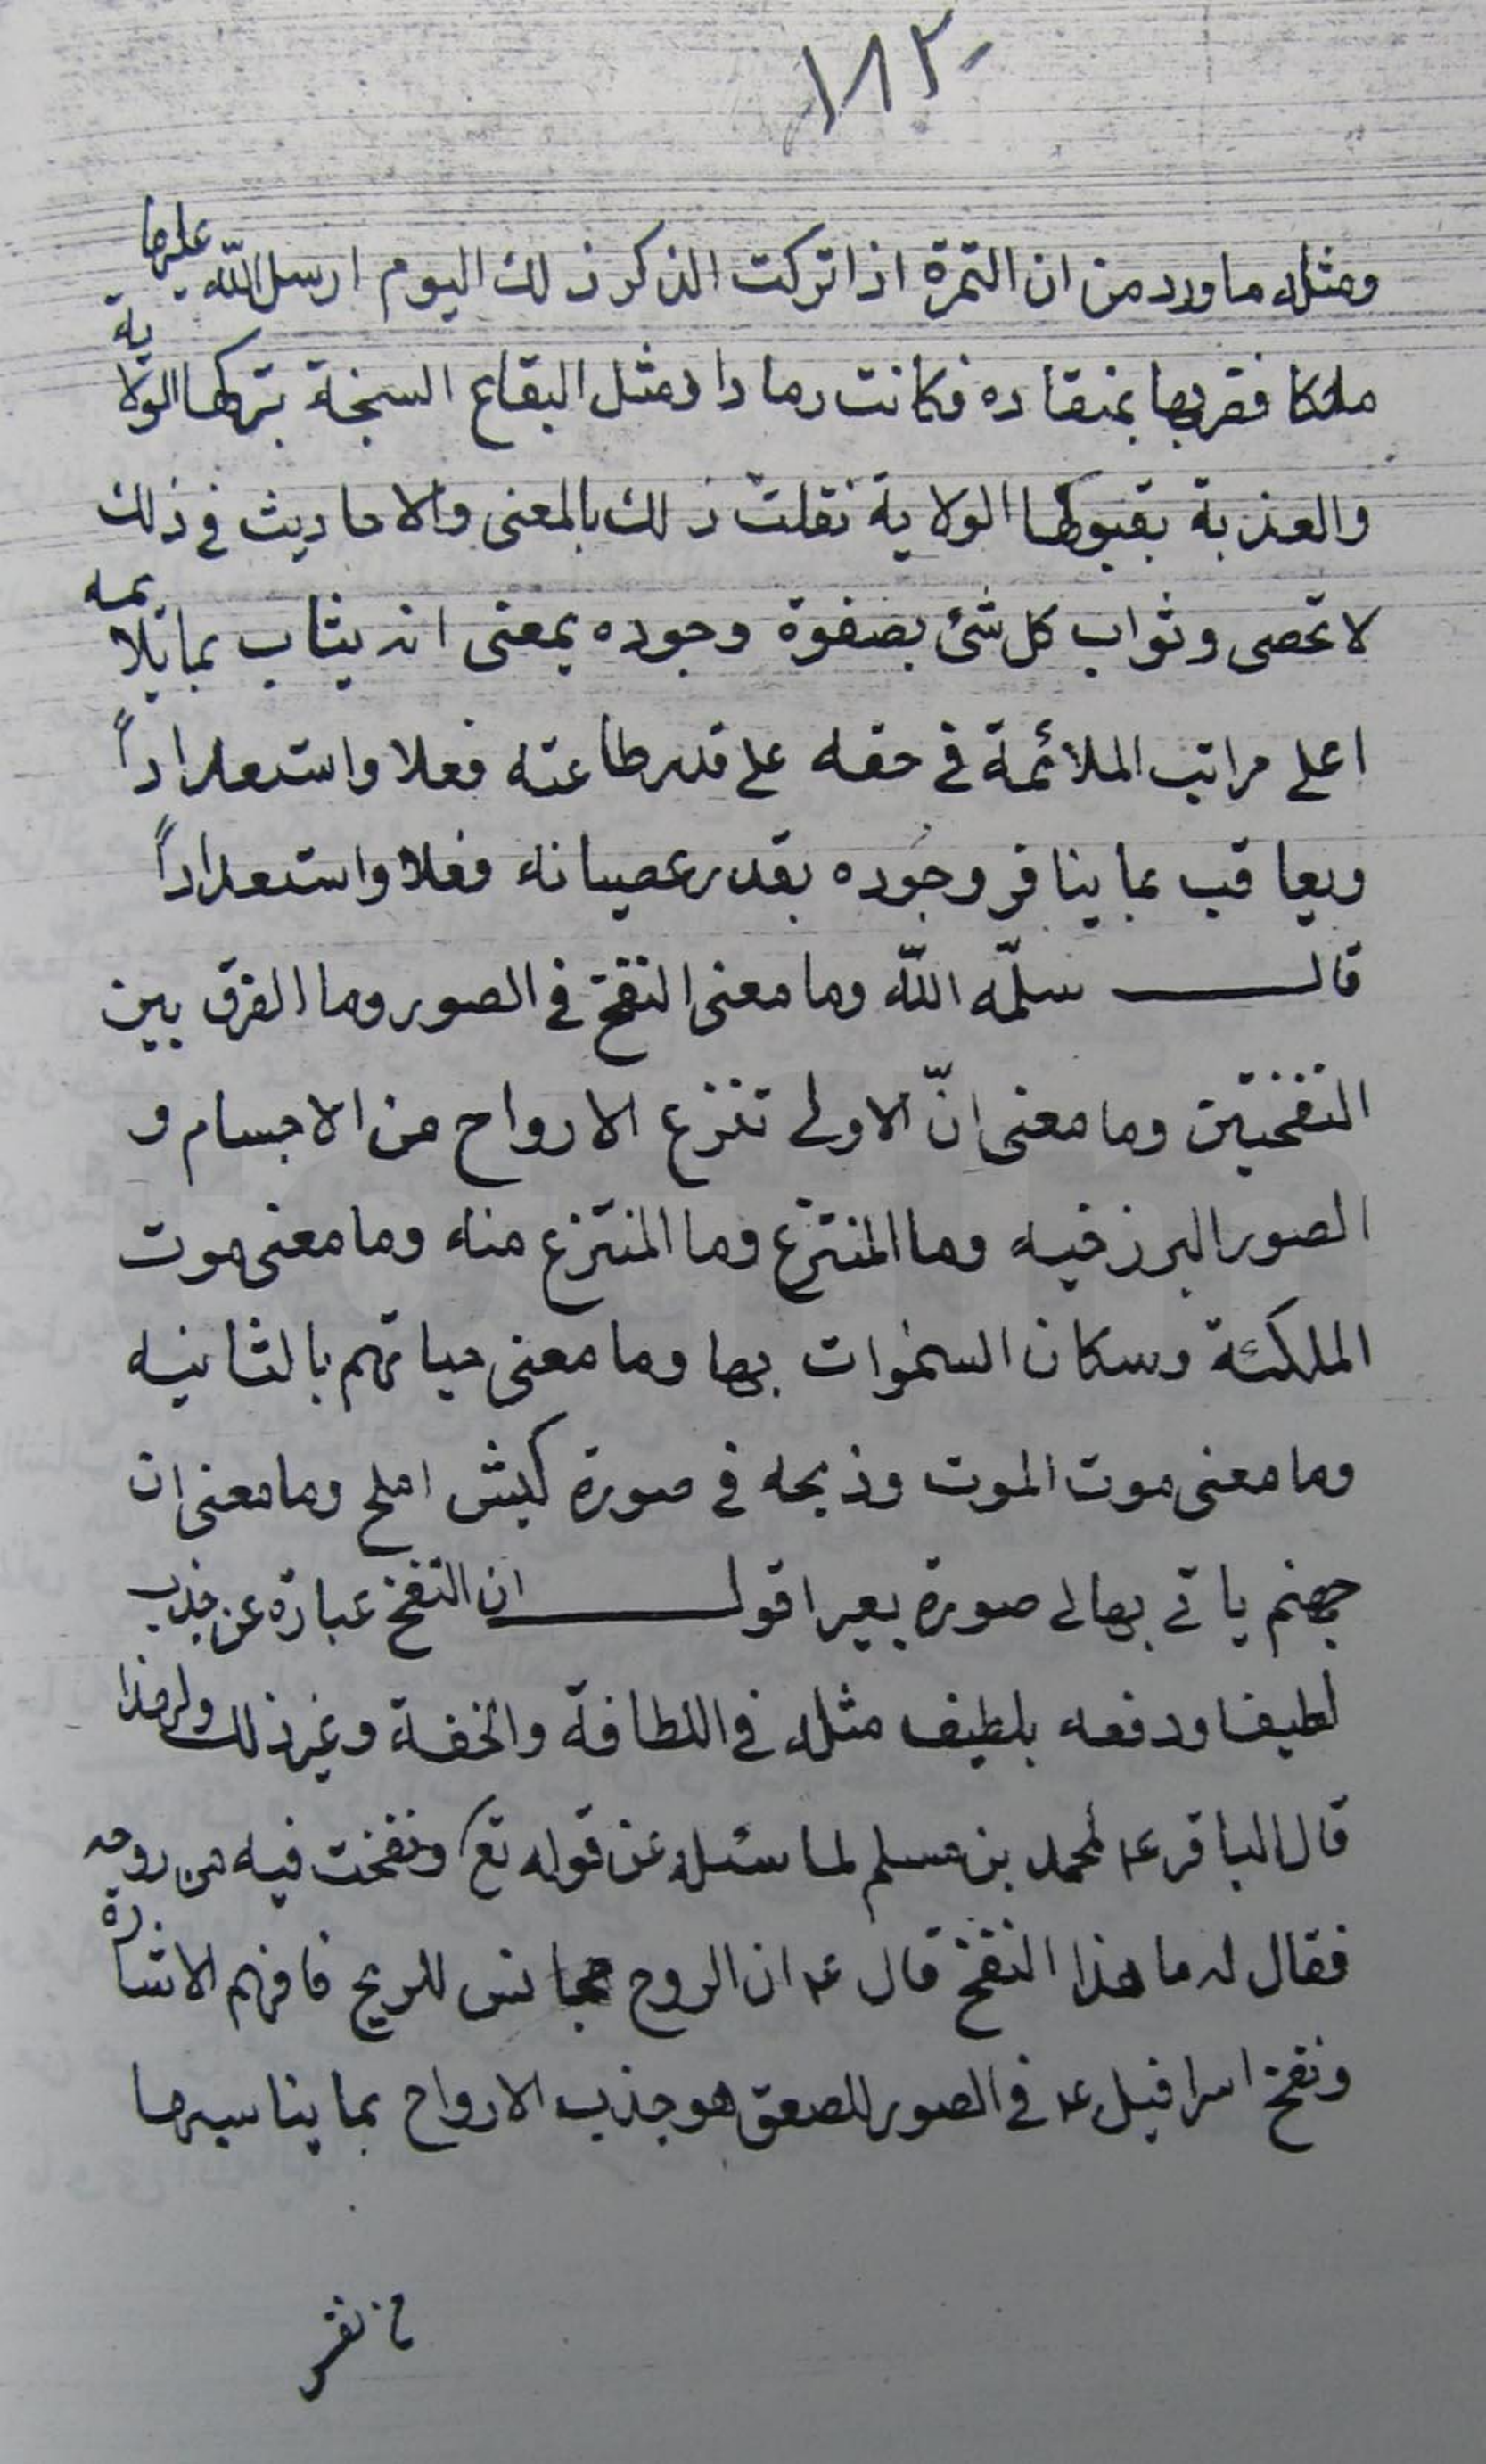 ١٨٢
ومثله ما ورد من ان التمرة اذا تركت الذكر ذلك اليوم ارسل الله عليها
ملكا فضربها بمنقاده فكانت رمادا ومثل البقاع السبخة بتركها الولاية
والعذبة بقبولها الولاية نقلت ذلك بالمعنى والاحاديث في ذلك
لا تحصى وثواب كل شئ بصفوة وجوده بمعنى انه يثاب بما يلايمه
اعلى مراتب الملائمة في حقه على قدر طاعته فعلا واستعداداً
ويعاقب بما ينافر وجوده بقدر عصيانه فعلا واستعداداً
قال سلّمه اللّه وما معنى النفخ في الصور وما الفرق بين
النفختين وما معنى انّ الاولى تنزع الارواح من الاجسام و
الصور البرزخيه وما المنتزع وما المنتزع منه وما معنى موت
الملئكة وسكان السموات بها وما معنى حياتهم بالثانيه
وما معنى موت الموت وذبحه في صورة كبش املح وما معنى ان
جهنم ياتى بها في صورة بعير اقول ان النفخ عبارة عن جذب
لطيف ودفعه بلطيف مثله في اللطافة والخفة وغير ذلك ولهذا
قال الباقر ع لمحمد بن مسلم لما سئله عن قوله تع ونفخت فيه من روحى
فقال له ما هذا النفخ قال ع ان الروح مجانس للريح فافهم الاشارة
ونفخ اسرافيل ع في الصور للصعق هو جذب الارواح بما يناسبها